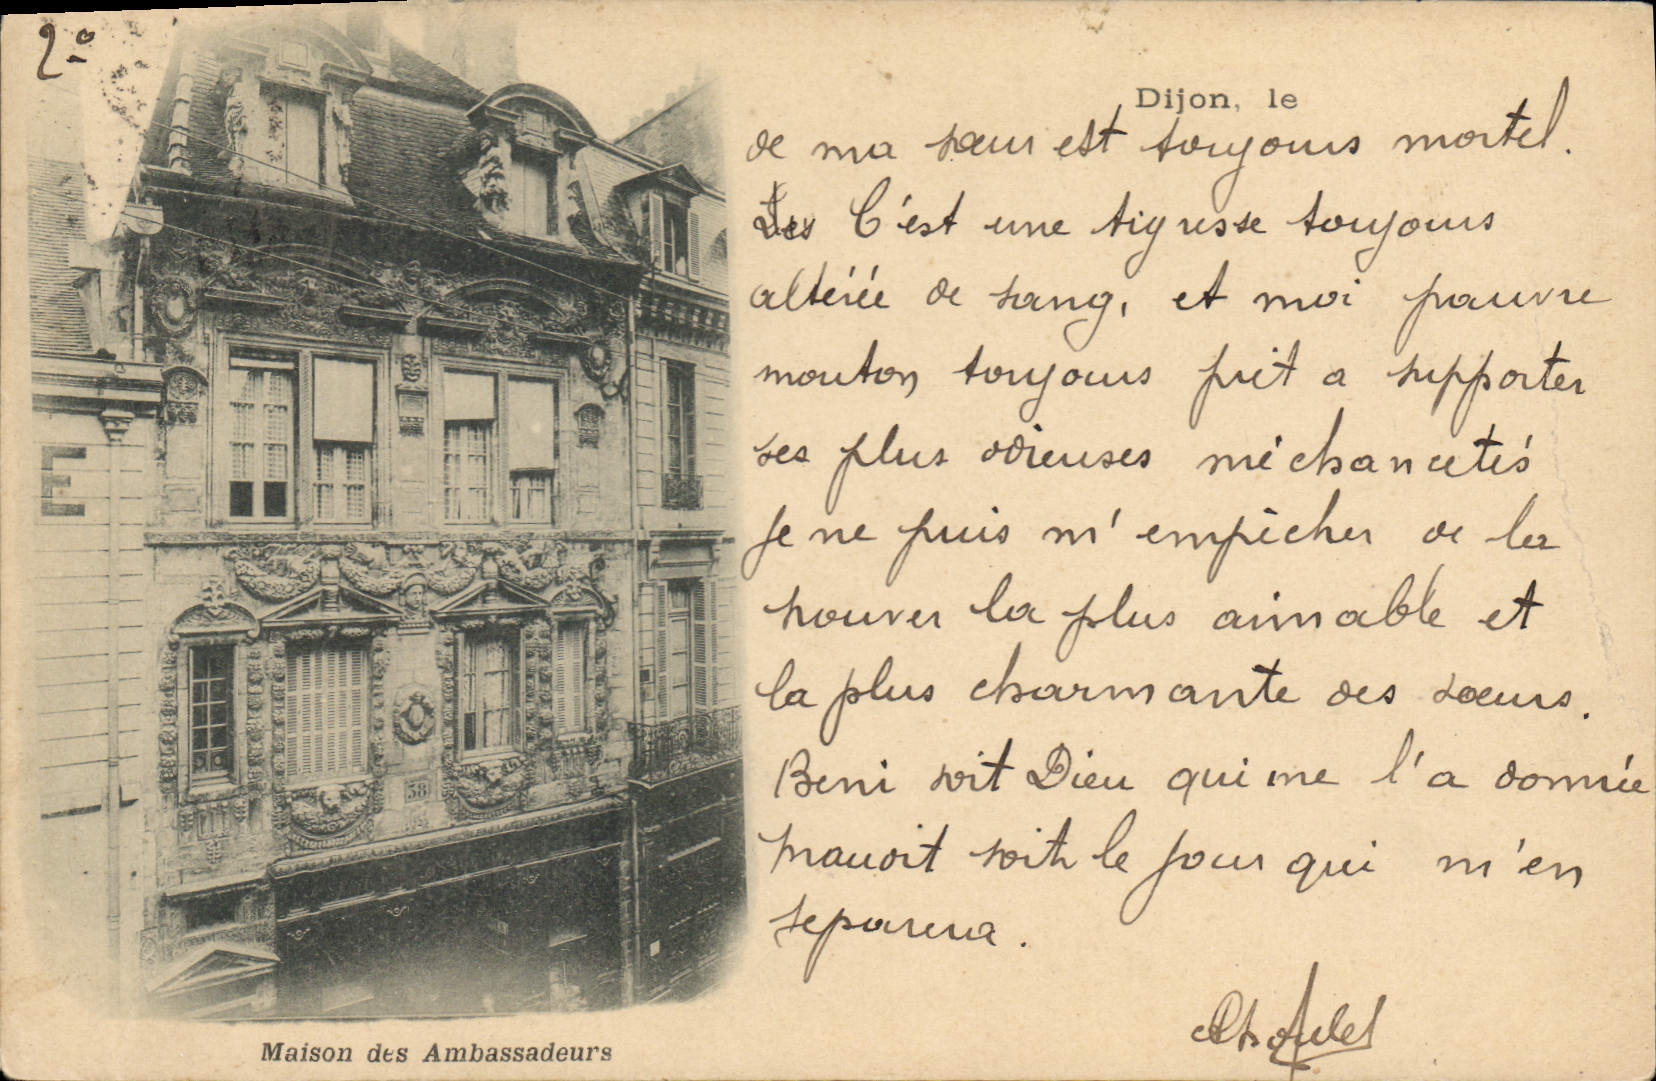 2º
Dijon, le
de ma sœur est toujours mortel.
C'est une tigresse toujours
altérée de sang, et moi pauvre
mouton toujours prêt a supporter
ses plus odieuses méchancetés
Je ne puis m'empêcher de la
trouver la plus aimable et
la plus charmante des sœurs.
Beni soit Dieu qui me l'a donnée
mauoit soit le jour qui m'en
separera.
E
38
Maison des Ambassadeurs